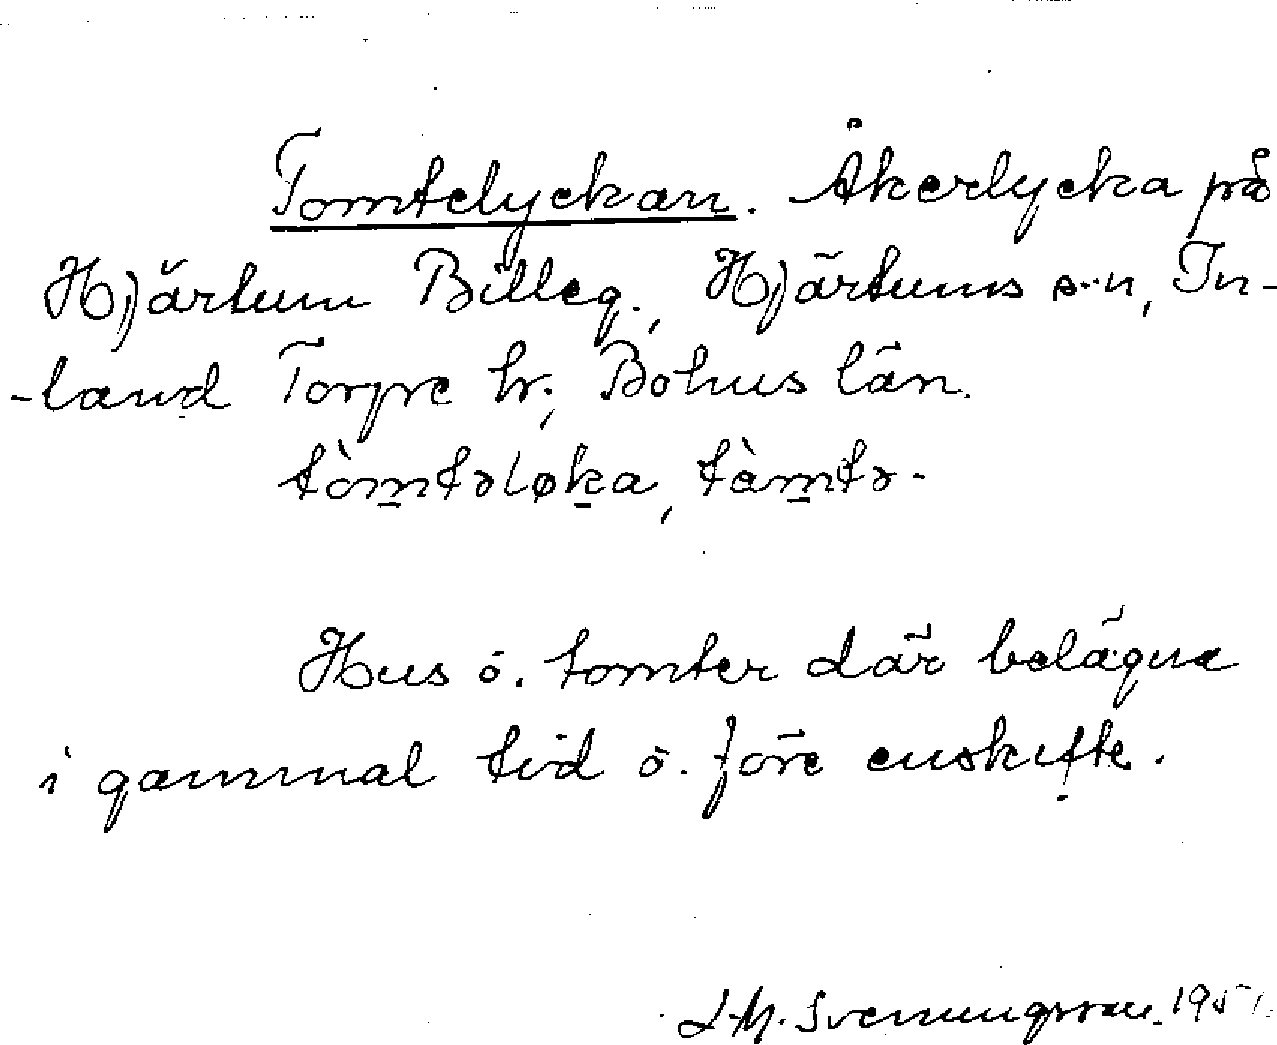 Tomtelyckan. Åkerlycka på
Hjärtum Billeg., Hjärtums s-n, In-
-land Torpe hr., Bohus län.
tòm̲təløk̲a, tàm̲tə-
Hus o. tomter där belägna
i gammal tid o. före enskifte.
J.M. Svenungsson